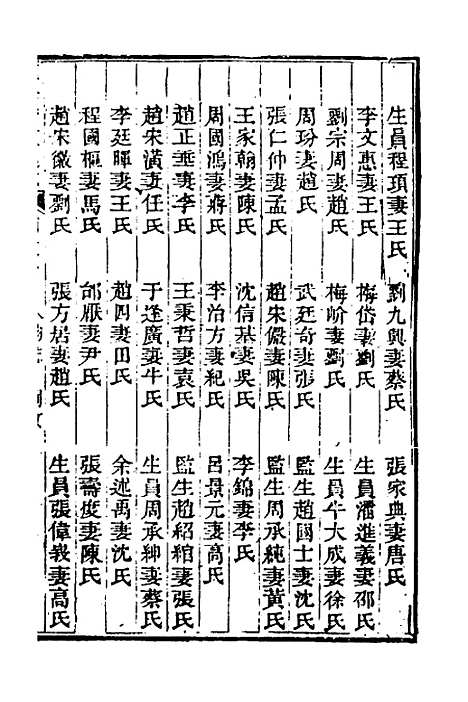 生員程項妻王氏　劉九與妻蔡氏　張家典妻唐氏
李文惠妻王氏　梅岱妻劉氏　生員潘進義妻邵氏
劉宗周妻趙氏　梅岭妻劉氏　生員牛大成妻徐氏
周玢妻趙氏　武廷奇妻張氏　監生趙國士妻沈氏
張仁仲妻孟氏　趙宋儼妻陳氏　監生周承純妻黃氏
王家翰妻陳氏　沈信基妻吳氏　李錦妻李氏
周國鴻妻蔣氏　李治方妻紀氏　呂景元妻高氏
趙正垂妻李氏　王秉哲妻袁氏　監生趙紹綰妻張氏
趙宋潢妻任氏　于逢廣妻牛氏　生員周承紳妻蔡氏
李廷暉妻王氏　趙四妻田氏　余述禹妻沈氏
程國樞妻馬氏　邰厫妻尹氏　張壽度妻陳氏
趙宋徽妻劉氏　張方居妻趙氏　生員張偉義妻高氏